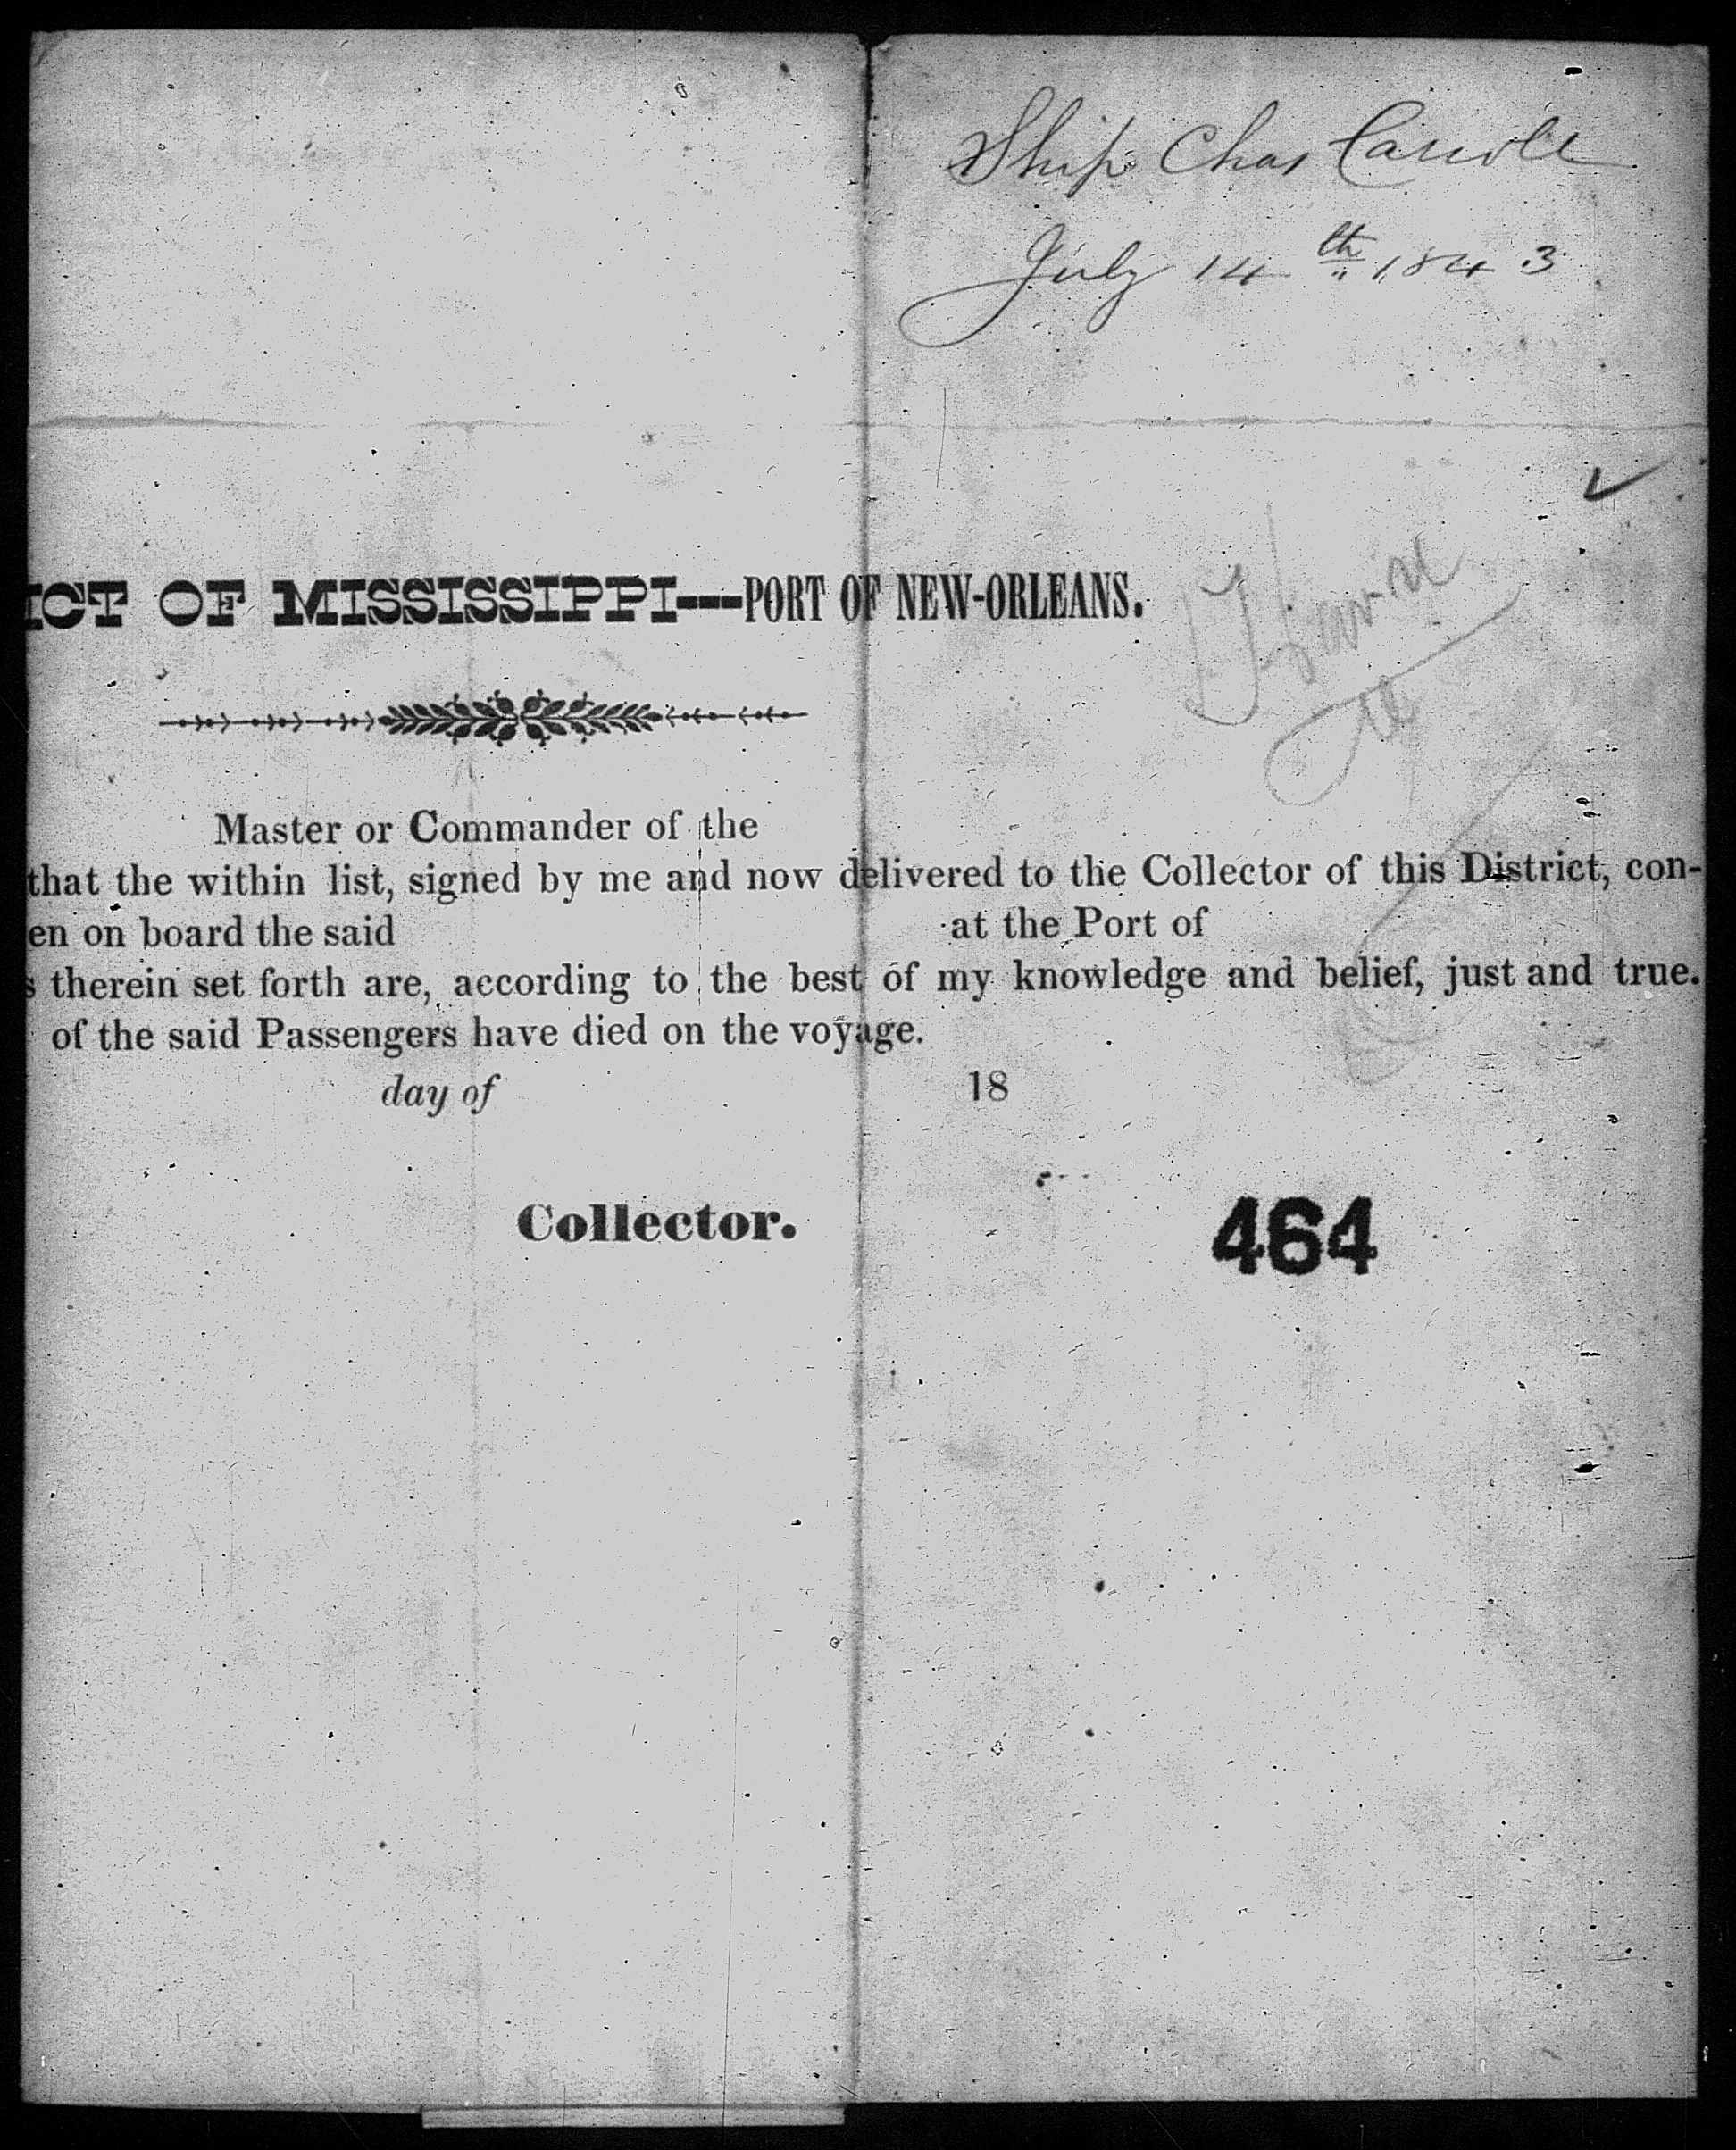 Ship Chas Carroll
July 14th 1843
ICT OF MISSISSIPPI---PORT OF NEW-ORLEANS.
Havre
Master or Commander of the
that the within list, signed by me and now delivered to the Collector of this District, con-
en on board the said at the Port of
s therein set forth are, according to the best of my knowledge and belief, just and true.
of the said Passengers have died on the voyage.
day of 18
Collector.
464